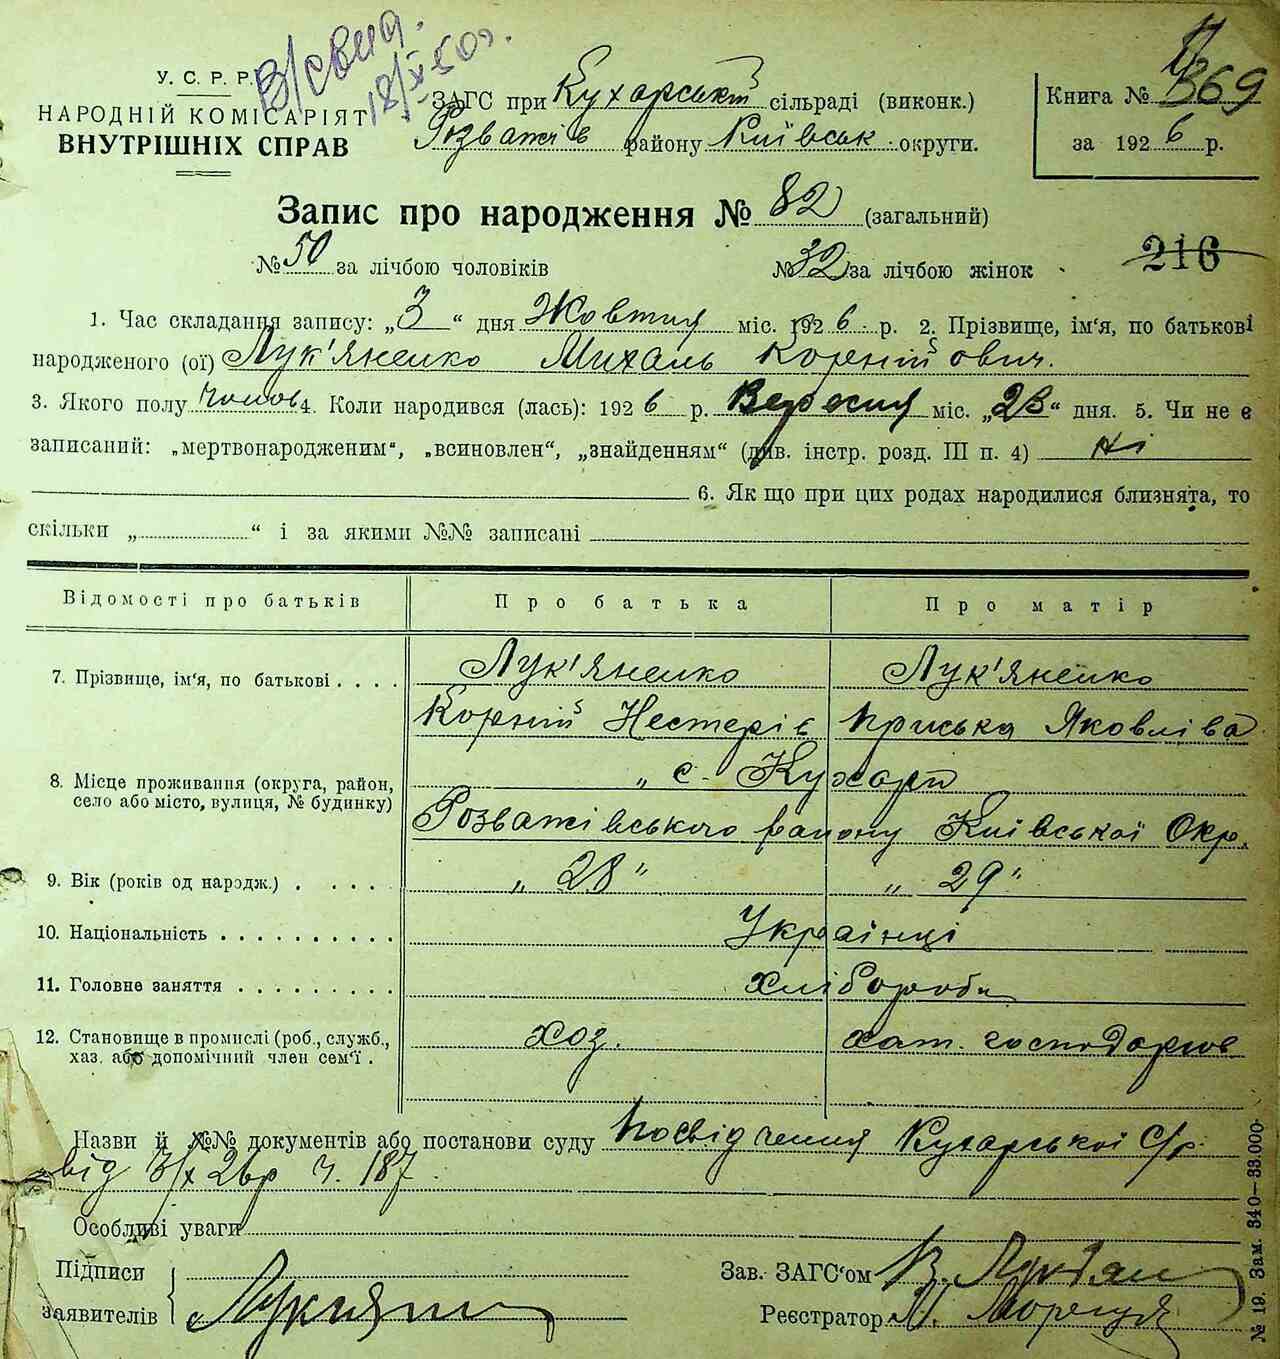 В/свид.
18/X-50 г.
У. С. Р. Р.
НАРОДНІЙ КОМІСАРІЯТ
ВНУТРІШНІХ СПРАВ
ЗАГС при Кухарськй сільраді (виконк.)
Розважів району Київськ. округи.
Книга № 369
за 1926 р.
Запис про народження № 82 (загальний)
№ 50 за лічбою чоловіків № 32 за лічбою жінок
216
1. Час складання запису: „3“ дня Жовтня міс. 1926 р. 2. Прізвище, ім'я, по батькові
народженого (ої) Лук'яненко Михаль Корнійович.
3. Якого полу чолов 4. Коли народився (лась): 1926 р. Вересня міс. „23“ дня. 5. Чи не є
записаний: „мертвонародженим“, „всиновлен“, „знайденням“ (див. інстр. розд. III п. 4) ні
6. Як що при цих родах народилися близнята, то
скільки „ “ і за якими №№ записані
Відомості про батьків Про батька Про матір
7. Прізвище, ім'я, по батькові . . . . Лук'яненко Лук'яненко
Корній Нестерів Приська Яковліва
8. Місце проживання (округа, район, „ с. Кухарі
село або місто, вулиця, № будинку) Розважівського району Київської Окр.
9. Вік (років од народж.) . . . . . „ 28 “ „ 29 “
10. Національність . . . . . . . . . . Українці
11. Головне заняття . . . . . . . . . Хлібороби
12. Становище в промислі (роб., служб., хоз. хат. господарюв
хаз. або допомічний член сем'ї .
Назви й №№ документів або постанови суду Посвідчення Кухарської С/р.
від 3/X 26р ч. 187.
Особливі уваги
Підписи
заявителів
Зав. ЗАГС'ом
Реєстратор М.
№ 19. Зам. 340—33.000.